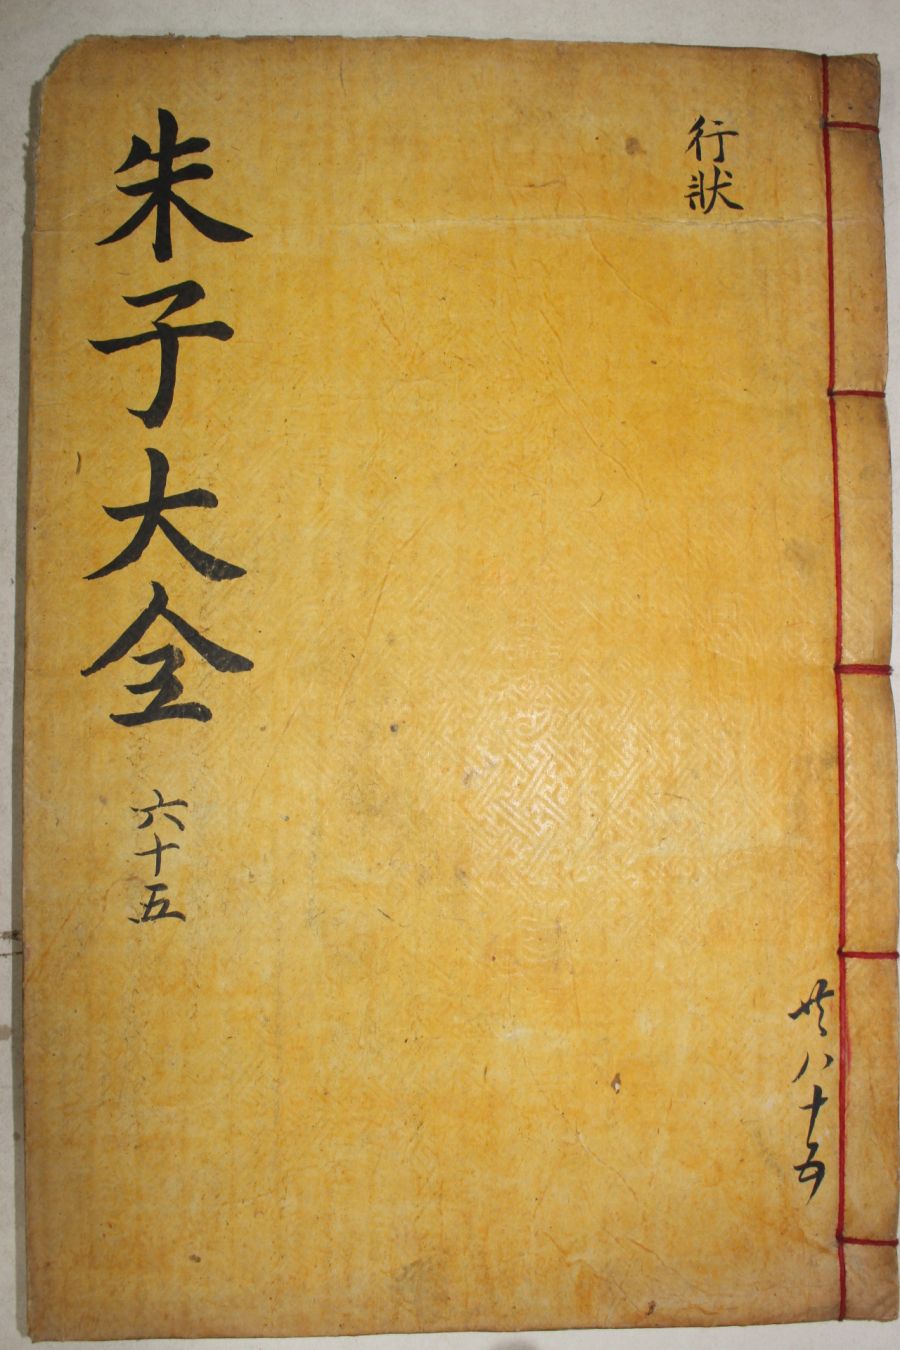 行狀
共八十五
朱子大全
六十五